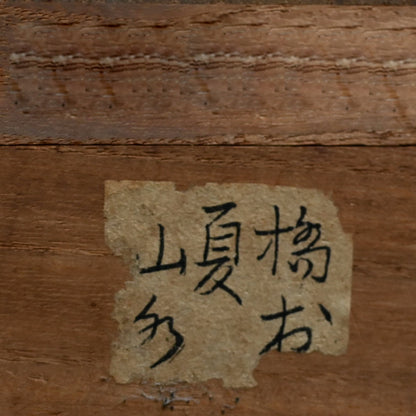 橋於
夏
山水